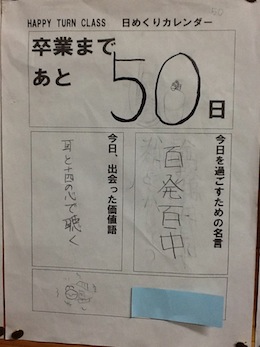 50
HAPPY TURN CLASS 日めくりカレンダー
卒業まで
あと 50 日
今日を過ごすための名言
百発百中
今日、出会った価値語
耳と十四の心で聴く